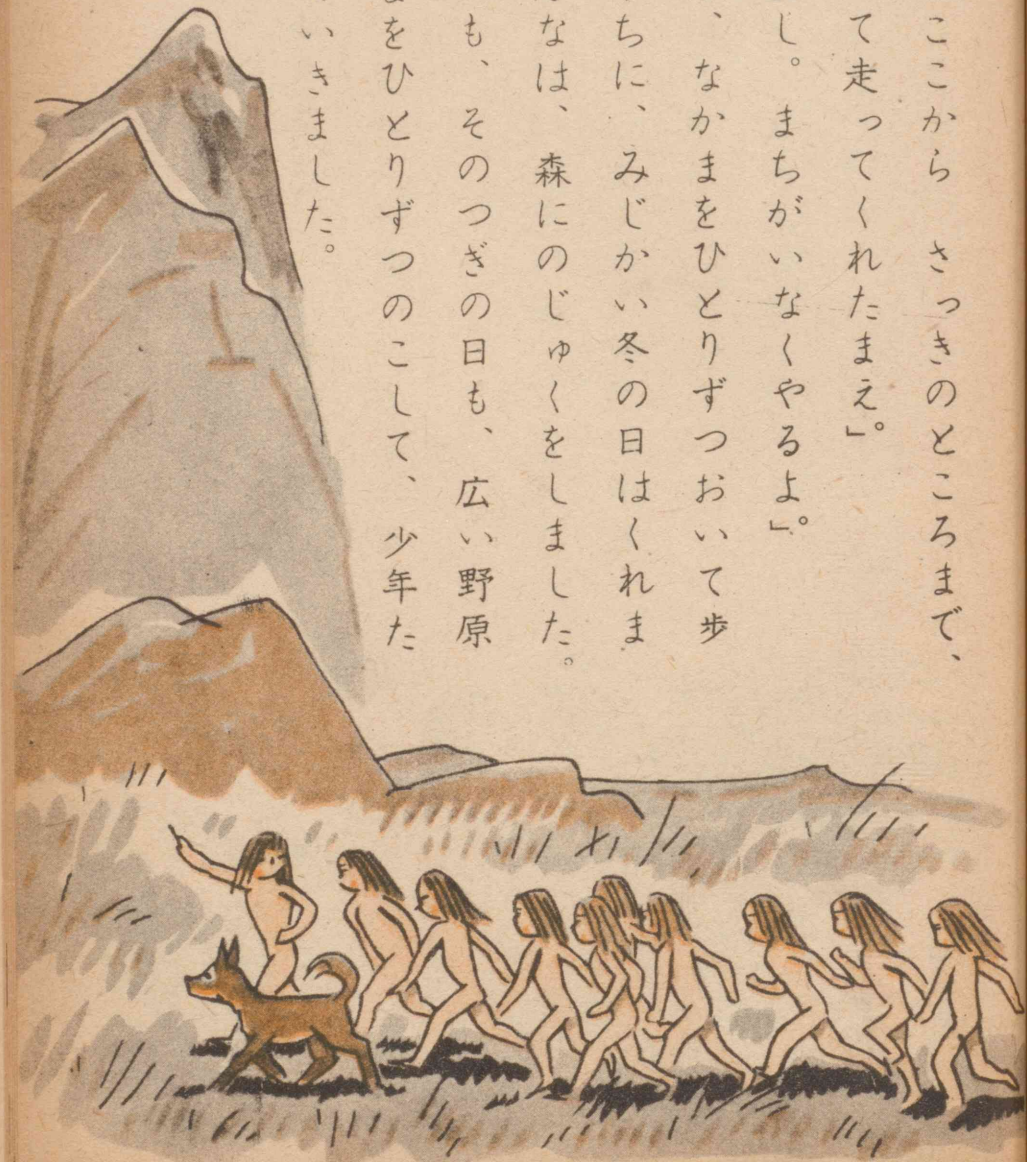 ここから　さっきのところまで、
て走ってくれたまえ」。
し。まちがいなくやるよ」。
、なかまをひとりずつおいて歩
ちに、みじかい冬の日はくれま
なは、森にのじゅくをしました。
も、そのつぎの日も、広い野原
をひとりずつのこして、少年た
いきました。